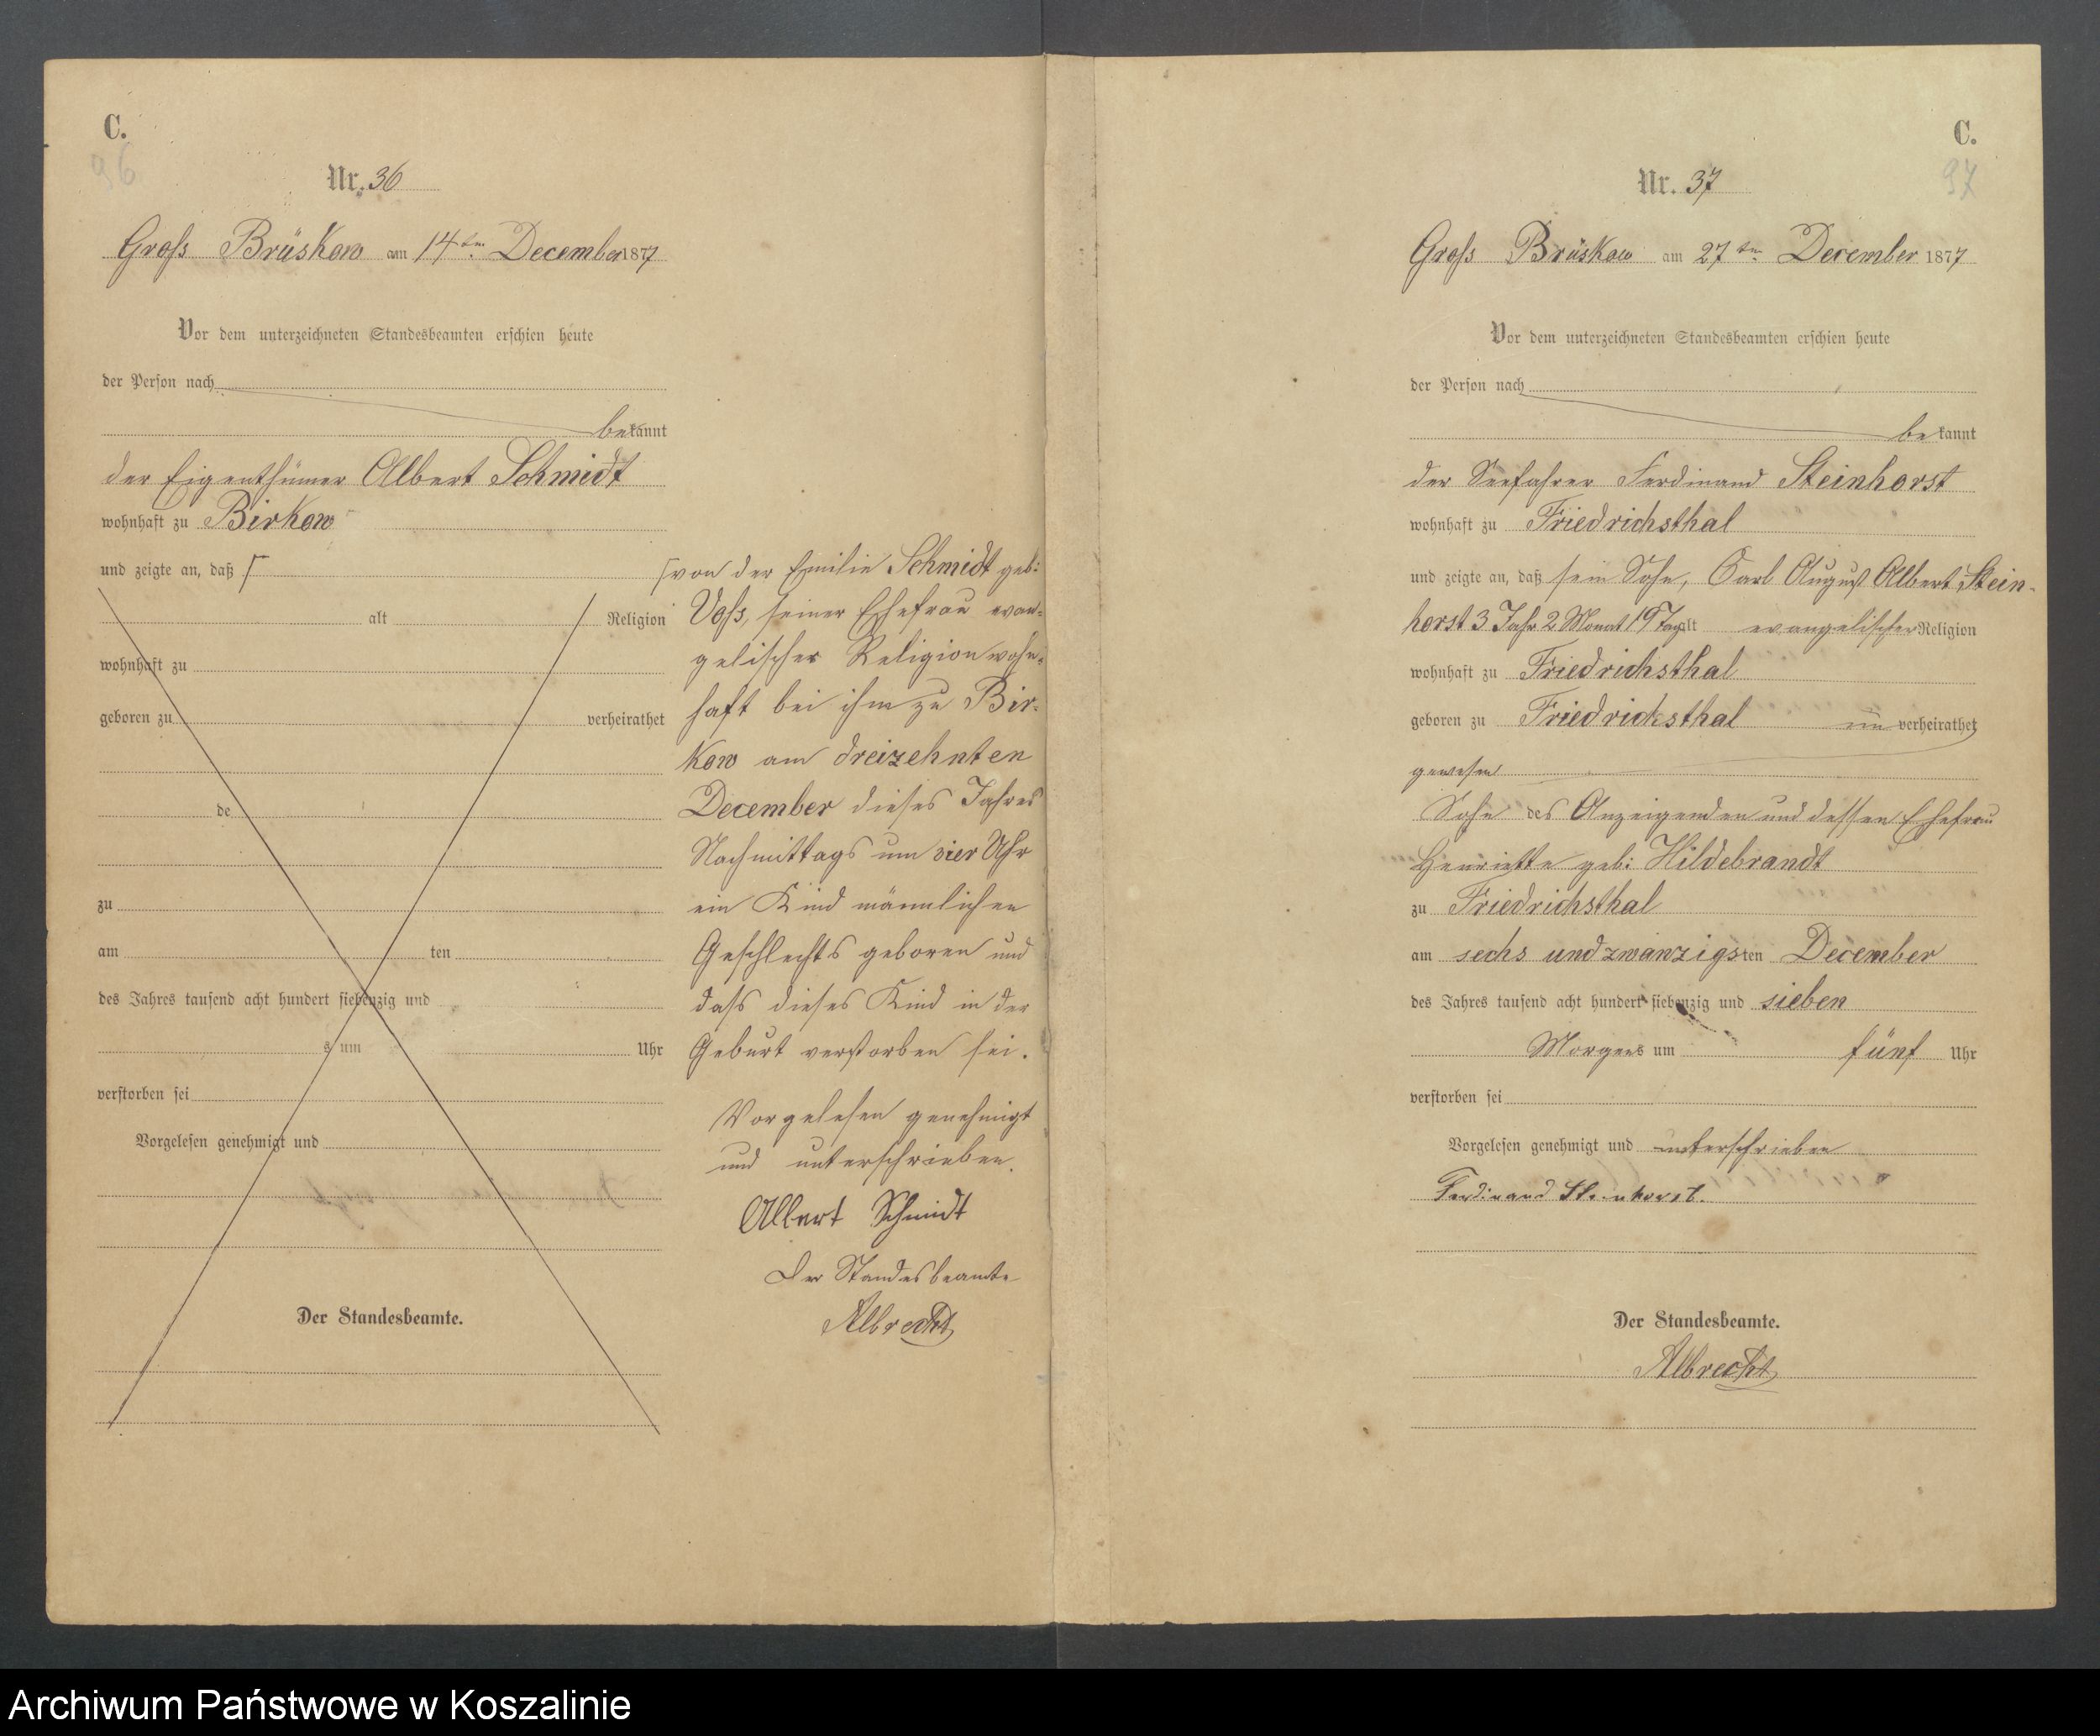 C.
96
Nr. 36
Groß Brüskow am 14ten December 1877
Vor dem unterzeichneten Standesbeamten erschien heute
der Person nach
bekannt
der Eigenthümer Albert Schmidt
wohnhaft zu Birkow
und zeigte an, daß
alt Religion
wohnhaft zu
geboren zu verheirathet
de
zu
am ten
des Jahres tausend acht hundert siebenzig und
s um Uhr
verstorben sei
Vorgelesen genehmigt und
Der Standesbeamte.
von der Emilie Schmidt geb:
Voß, seiner Ehefrau evan-
gelischer Religion wohn-
haft bei ihm zu Bir-
kow am dreizehnten
December dieses Jahres
Nachmittags um vier Uhr
ein Kind männlichen
Geschlechts geboren und
dass dieses Kind in der
Geburt verstorben sei.
Vorgelesen genehmigt
und unterschrieben.
Albert Schmidt
Der Standesbeamte
Albrecht
C.
97
Nr. 37
Groß Brüskow am 27ten December 1877
Vor dem unterzeichneten Standesbeamten erschien heute
der Person nach
bekannt
der Seefahrer Ferdinand Steinhorst
wohnhaft zu Friedrichsthal
und zeigte an, daß sein Sohn, Carl August Albert Stein-
horst 3 Jahr 2 Monat 19 Tag alt evangelischer Religion
wohnhaft zu Friedrichsthal
geboren zu Friedrichsthal un verheirathet
gewesen
Sohn des Anzeigenden und dessen Ehefrau
Henriette geb: Hildebrandt
zu Friedrichsthal
am sechs und zwanzigsten December
des Jahres tausend acht hundert siebenzig und sieben
Morgens um fünf Uhr
verstorben sei
Vorgelesen genehmigt und unterschrieben
Ferdinand Steinhorst.
Der Standesbeamte.
Albrecht
Archiwum Państwowe w Koszalinie